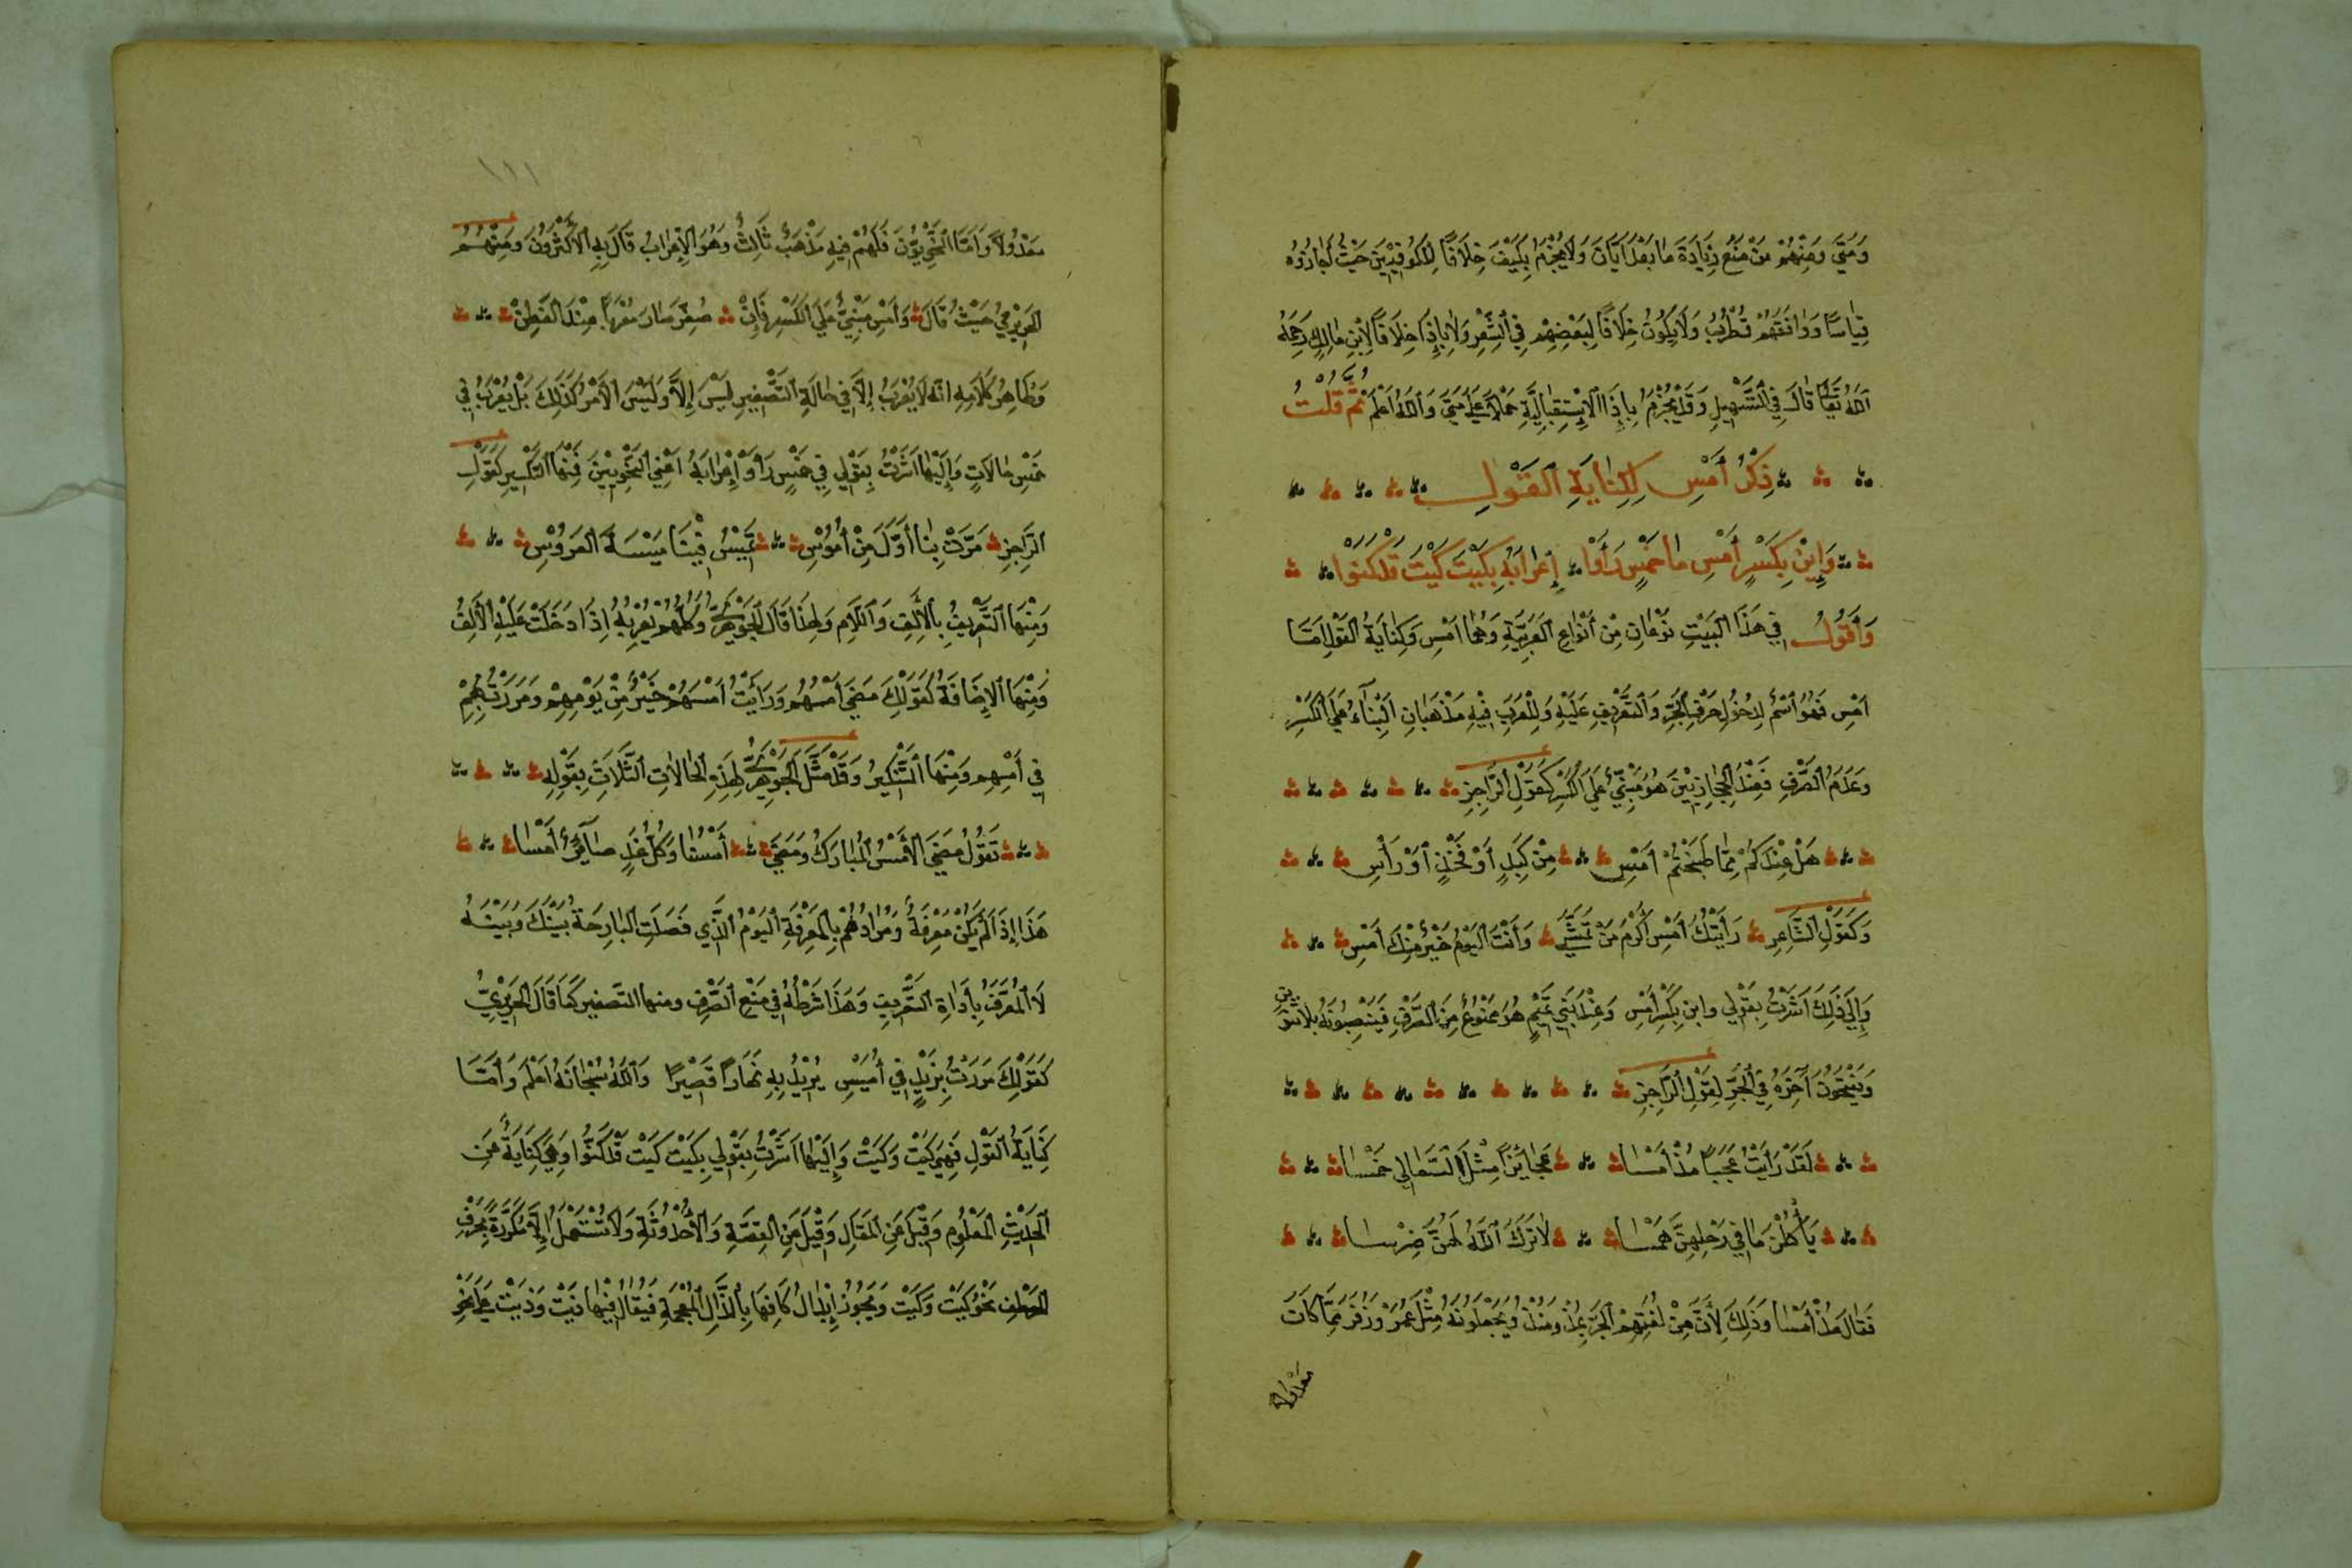 وَمَتَى وَمِنْهُمْ مَنْ مَنَعَ زِيَادَةَ مَا بَعْدَ أَيَّانَ وَلَا يُجْزَمُ بِكَيْفَ خِلَافًا لِلْكُوفِيِّينَ حَيْثُ أَجَازُوهُ
قِيَاسًا وَوَافَقَهُمْ قُطْرُبُ وَلَا يَكُونُ خِلَافًا لِبَعْضِهِمْ فِي الشِّعْرِ وَلَا بِإِذَا خِلَافًا لِابْنِ مَالِكٍ رَحِمَهُ
اللَّهُ تَعَالَى قَالَ فِي التَّسْهِيلِ وَقَدْ يُجْزَمُ بِإِذَا الْإِسْتِقْبَالِيَّةِ حَمْلًا عَلَى مَتَى وَاللَّهُ أَعْلَمُ ثُمَّ قُلْتُ
ذِكْرُ أَمْسِ لِكِنَايَةِ الْقَوْلِ
وَابْنِ بِكَسْرٍ أَمْسِ مَا خَمْسٍ رَأَوْا إِعْرَابَهُ بِكَيْتَ كَيْتَ قَدْ كَنَوْا
وَأَقُولُ فِي هَذَا الْبَيْتِ نَوْعَانِ مِنْ أَنْوَاعِ الْعَرَبِيَّةِ وَهُمَا أَمْسِ وَكِنَايَةُ الْقَوْلِ أَمَّا
أَمْسِ فَهُوَ اسْمٌ لِدُخُولِ حَرْفِ الْجَرِّ وَالتَّعْرِيفِ عَلَيْهِ وَلِلْعَرَبِ فِيهِ مَذْهَبَانِ الْبِنَاءُ عَلَى الْكَسْرِ
وَعَدَمُ الصَّرْفِ فَعِنْدَ الْحِجَازِيِّينَ هُوَ مَبْنِيٌّ عَلَى الْكَسْرِ كَقَوْلِ الرَّاجِزِ
هَلْ عِنْدَكُمْ مِمَّا طَبَخْتُمْ أَمْسِ مِنْ كَبِدٍ أَوْ فَخْذٍ أَوْ رَأْسِ
وَكَقَوْلِ الشَّاعِرِ رَأَيْتُكَ أَمْسِ أَكْرَمَ مَنْ تَمَشَّى وَأَنْتَ الْيَوْمَ خَيْرٌ مِنْكَ أَمْسِ
وَإِلَى ذَلِكَ أَشَرْتُ بِقَوْلِي وابن بِكَسْرٍ أَمْسِ وَعِنْدَ بَنِي تَمِيمٍ هُوَ مَمْنُوعٌ مِنَ الصَّرْفِ فَيَنْصِبُونَهُ بِلَا تَنْوِينٍ
وَيَفْتَحُونَ آخِرَهُ فِي الْجَرِّ لِقَوْلِ الرَّاجِزِ
لَقَدْ رَأَيْتُ عَجَبًا مُذْ أَمْسَا عَجَائِزًا مِثْلَ السَّعَالِي خَمْسَا
يَأْكُلْنَ مَا فِي رَحْلِهِنَّ هَمْسَا لَا تَرَكَ اللَّهُ لَهُنَّ ضِرْسَا
فَقَالَ مُذْ أَمْسَا وَذَلِكَ لِأَنَّ مِنْ لُغَتِهِمْ الْجَرَّ بِمُذْ وَمُنْذُ وَيَجْعَلُونَهُ مِثْلَ عُمَرَ وَزُفَرَ مِمَّا كَانَ
مَعْدُولًا
١١١
مَعْدُولًا وَأَمَّا النَّحْوِيُّونَ فَلَهُمْ فِيهِ مَذْهَبٌ ثَالِثٌ وَهُوَ الْإِعْرَابُ قَالَ بِهِ الْأَكْثَرُونَ وَمِنْهُمُ
الْحَرِيرِيُّ حَيْثُ قَالَ وَأَمْسِ مَبْنِيٌّ عَلَى الْكَسْرِ فَإِنْ صُغِّرَ صَارَ مُعْرَبًا عِنْدَ الْفَطِنْ
وَظَاهِرُ كَلَامِهِ أَنَّهُ لَا يُعْرَبُ إِلَّا فِي حَالَةِ التَّصْغِيرِ لَيْسَ إِلَّا وَلَيْسَ الْأَمْرُ كَذَلِكَ بَلْ يُعْرَبُ فِي
خَمْسِ حَالَاتٍ وَإِلَيْهَا أَشَرْتُ بِقَوْلِي فِي خَمْسٍ رَأَوْا إِعْرَابَهُ أَعْنِي النَّحْوِيِّينَ فَمِنْهَا التَّكْسِيرُ كَقَوْلِ
الرَّاجِزِ مَرَّتْ بِنَا أَوَّلَ مِنْ أُمُوسِ تَمِيسُ فِينَا مَيْسَةَ الْعَرُوسِ
وَمِنْهَا التَّعْرِيفُ بِالْأَلِفِ وَاللَّامِ وَلِهَذَا قَالَ الْجَوْهَرِيُّ وَكُلُّهُمْ يُعْرِبُهُ إِذَا دَخَلَتْ عَلَيْهِ الْأَلِفُ
وَمِنْهَا الْإِضَافَةُ كَقَوْلِكَ مَضَى أَمْسُهُمْ وَرَأَيْتُ أَمْسَهُمْ خَيْرٌ مِنْ يَوْمِهِمْ وَمَرَرْتُ بِهِمْ
فِي أَمْسِهِمْ وَمِنْهَا التَّنْكِيرُ وَقَدْ مَثَّلَ الْجَوْهَرِيُّ لِهَذِهِ الْحَالَاتِ الثَّلَاثِ بِقَوْلِهِ
تَقُولُ مَضَى الْأَمْسُ الْمُبَارَكُ وَمَضَى أَمْسُنَا وَكُلُّ غَدٍ صَائِرٌ أَمْسَا
هَذَا إِذَا لَمْ يَكُنْ مَعْرِفَةً وَمُرَادُهُمْ بِالْمَعْرِفَةِ الْيَوْمُ الَّذِي فَصَلَتِ الْبَارِحَةُ بَيْنَكَ وَبَيْنَهُ
لَا الْمُعَرَّفُ بِأَدَاةِ التَّعْرِيفِ وَهَذَا شَرْطُهُ فِي مَنْعِ الصَّرْفِ ومنها التصغير كَمَا قَالَ الْحَرِيرِيُّ
كَقَوْلِكَ مَرَرْتُ بِزَيْدٍ فِي أُمَيْسٍ يُرِيدُ بِهِ نَهَارًا قَصِيرًا وَاللَّهُ سُبْحَانَهُ أَعْلَمُ وَأَمَّا
كِنَايَةُ الْقَوْلِ فَهِيَ كَيْتَ وَكَيْتَ وَإِلَيْهَا أَشَرْتُ بِقَوْلِي بِكَيْتَ كَيْتَ قَدْ كَنَوْا وَهِيَ كِنَايَةٌ عَنِ
الْحَدِيثِ الْمَعْلُومِ وَقِيلَ عَنِ الْمَقَالِ وَقِيلَ عَنِ الْقِصَّةِ وَالْأُحْدُوثَةِ وَلَا تُسْتَعْمَلُ إِلَّا مُكَرَّرَةً بِحَرْفِ
الْعَطْفِ نَحْوُ كَيْتَ وَكَيْتَ وَيَجُوزُ إِبْدَالُ كَافِهَا بِالذَّالِ الْمُعْجَمَةِ فَيُقَالُ فِيهَا ذَيْتَ وَذَيْتَ عَلَى نَحْوِ